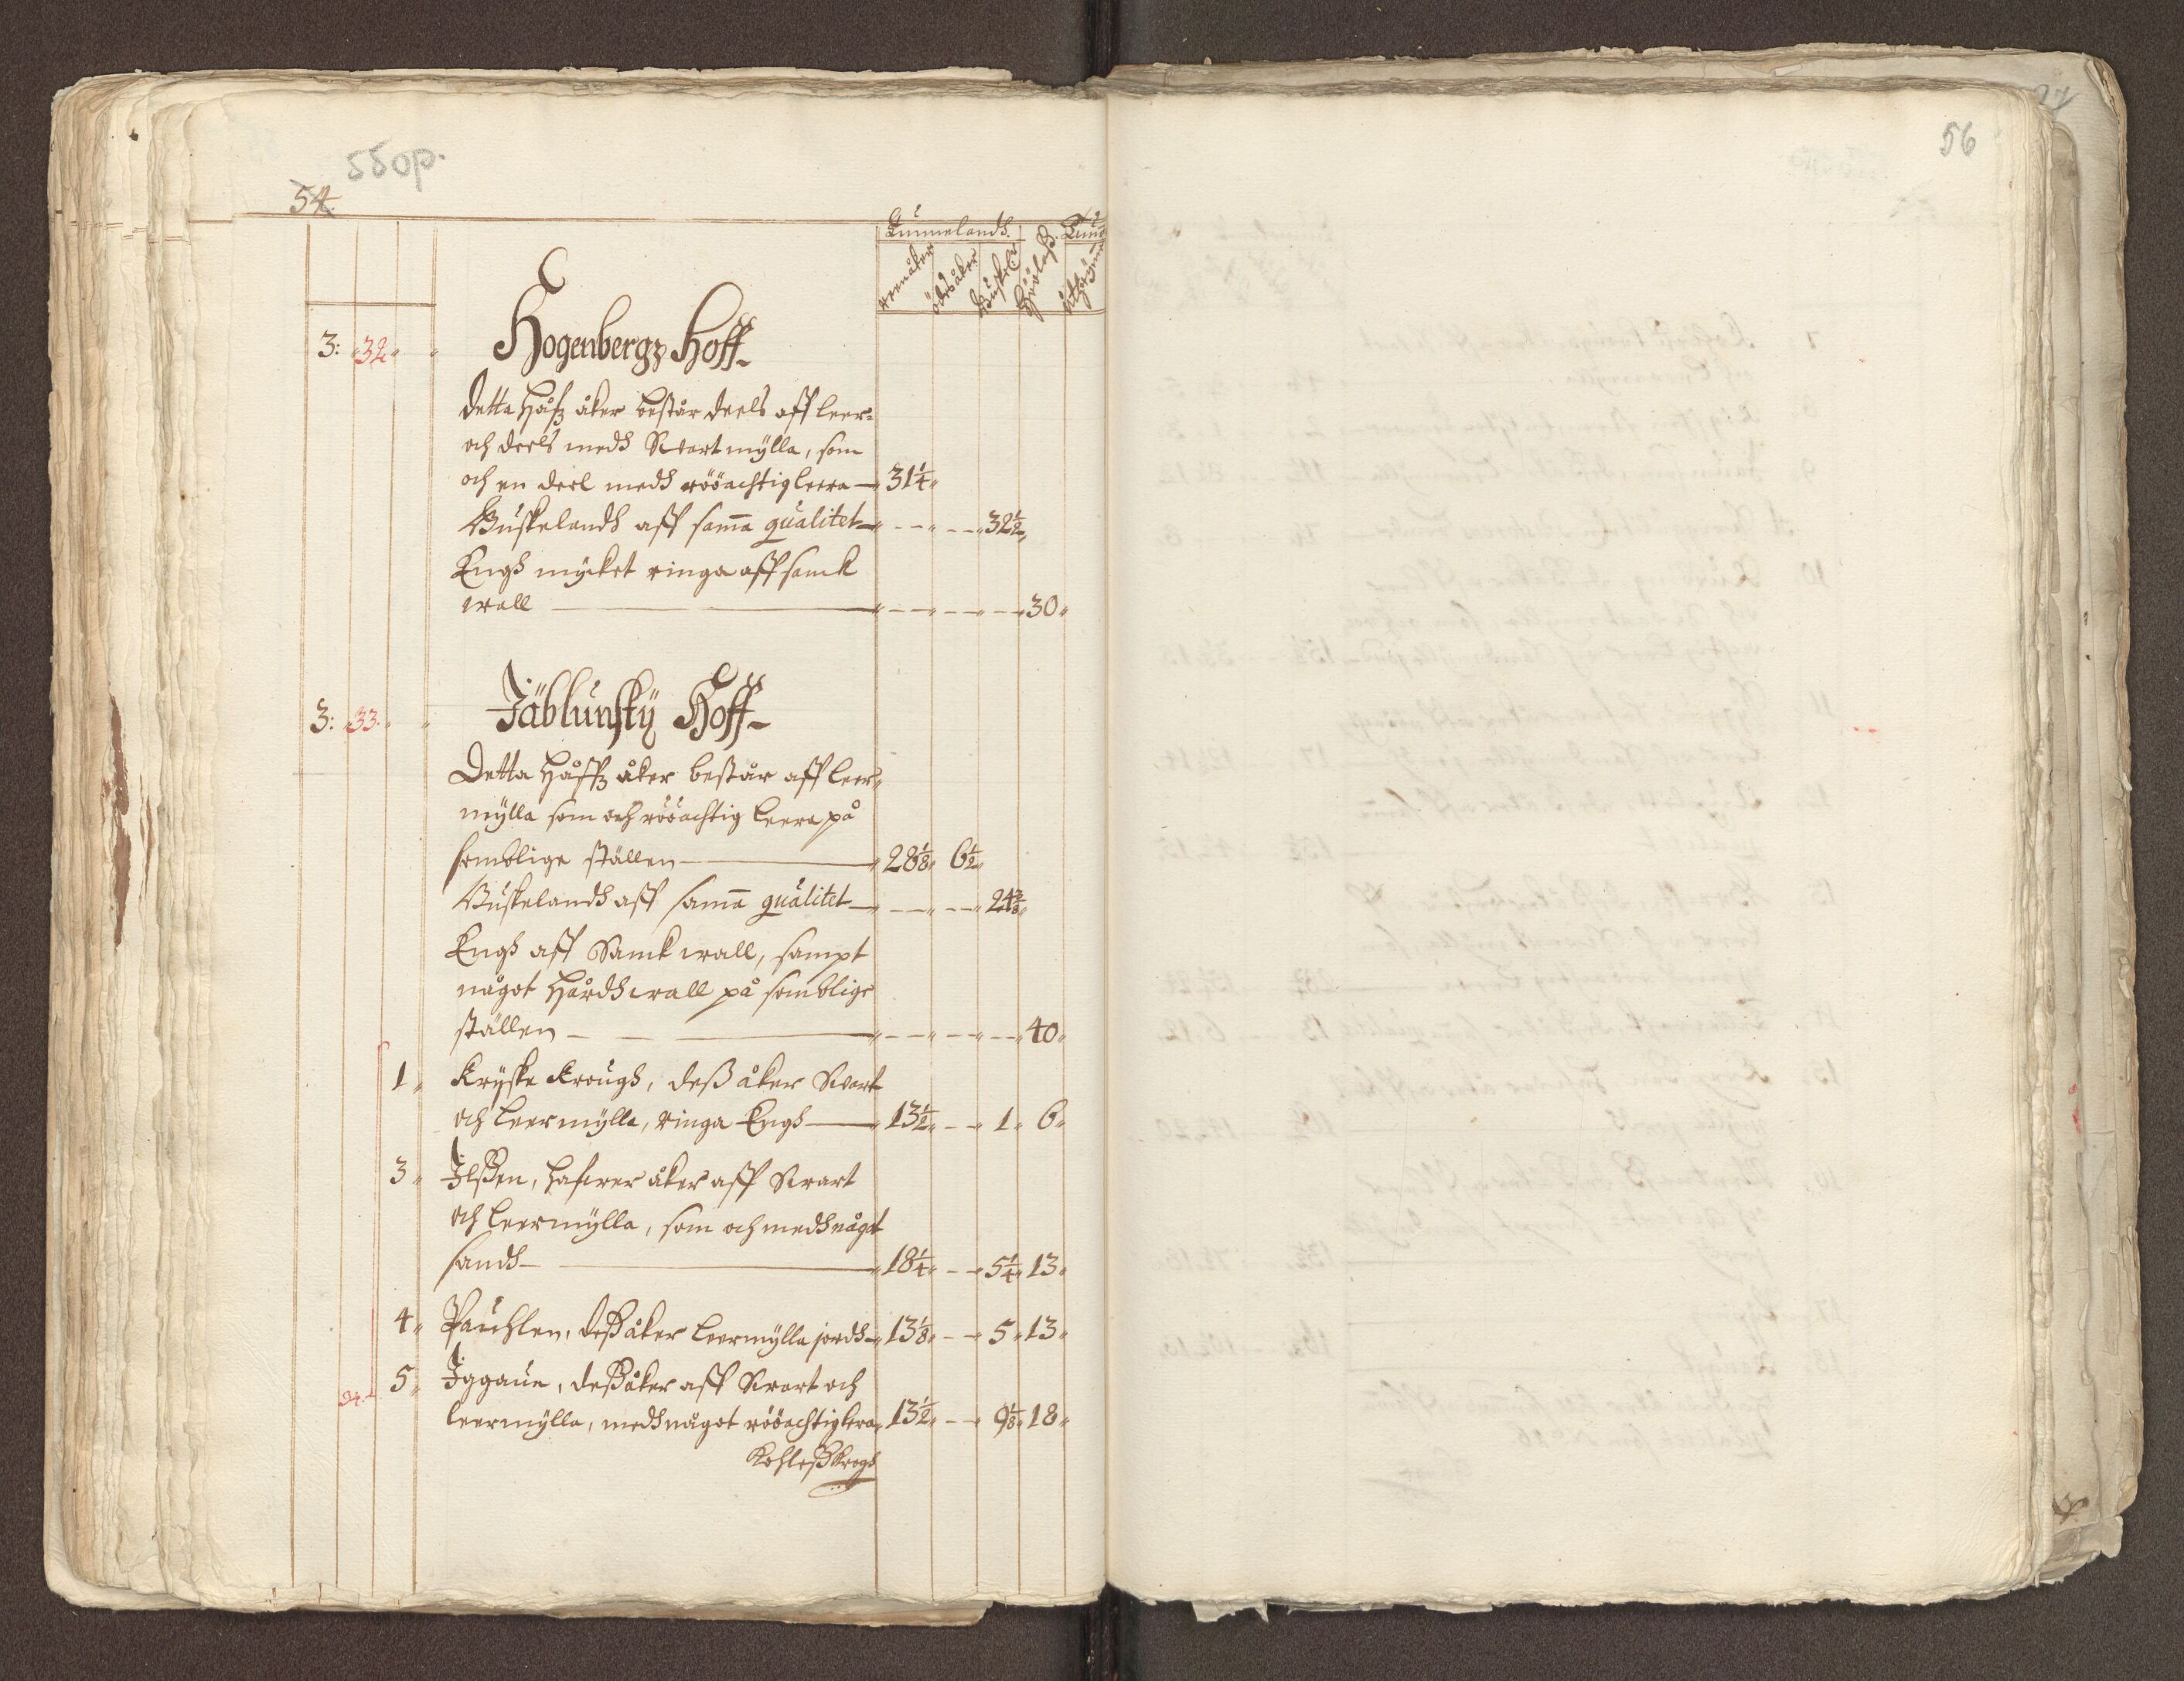 55op.
54.
Tunnelandh. Tunn
reenåker ödesåker Buskel: Höölass. Uthsäde
3: 32 Hogenbergz Hoff
Detta Håfz åker består deels aff leer-
och deels medh Swartmylla, som
och en deel medh rööachtig leera — 31¼
Buskelandh aff sam̄a qualitet — 32½
Engh mycket ringa aff sanck
wall — 30
3: 33. Jäblunsky Hoff
Detta håffz åker består aff leer-
mylla som och rööachtig leera på
somblige ställen — 28⅛ 6½
Buskelandh aff sam̄a qualitet — 24⅜
Engh aff Sanck wall, sampt
något hårdhwall på somblige
ställen — 40
1 Kryske Krough, dess åker Swart
och leermylla, ringa Engh — 13½ 1 6
3 Ilssen, hafwer åker aff Swart
och leermylla, som och medh något
sandh — 18¼ 5¼ 13
4 Pauhlen, dess åker leermylla jordh — 13⅛ 5 13
5 Iggaun, dess åker aff Swart och
34. leermylla, medh något rööachtig leera 13½ 9⅛ 18
Kohlesskrogh
56